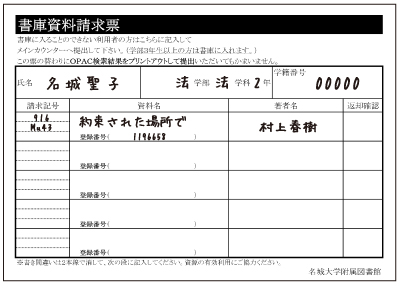 書庫資料請求票
書庫に入ることのできない利用者の方はこちらに記入して
メインカウンターへ提出して下さい。(学部3年生以上の方は書庫に入れます。)
この票の替わりにOPAC検索結果をプリントアウトして提出いただいてもかまいません。
氏名 名城聖子 法 学部 法 学科 2 年 学籍番号 00000
請求記号 資料名 著者名 返却確認
916 約束された場所で 村上春樹
Mu43
登録番号( 1196658 )
登録番号( )
登録番号( )
登録番号( )
登録番号( )
※書き間違いは2本線で消して、次の段に記入してください。資源の有効利用にご協力ください。
名城大学附属図書館